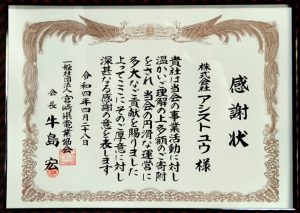 感謝状
株式会社 アシストユウ 様
貴社は当会の事業活動に対し
温かいご理解の上多額のご寄附
をされ 当会の円滑な運営に
多大なご貢献を賜りました
よってここにそのご厚意に対し
深甚なる感謝の意を表します
令和四年四月二十八日
一般社団法人宮崎県電業協会
会長 牛島 宏